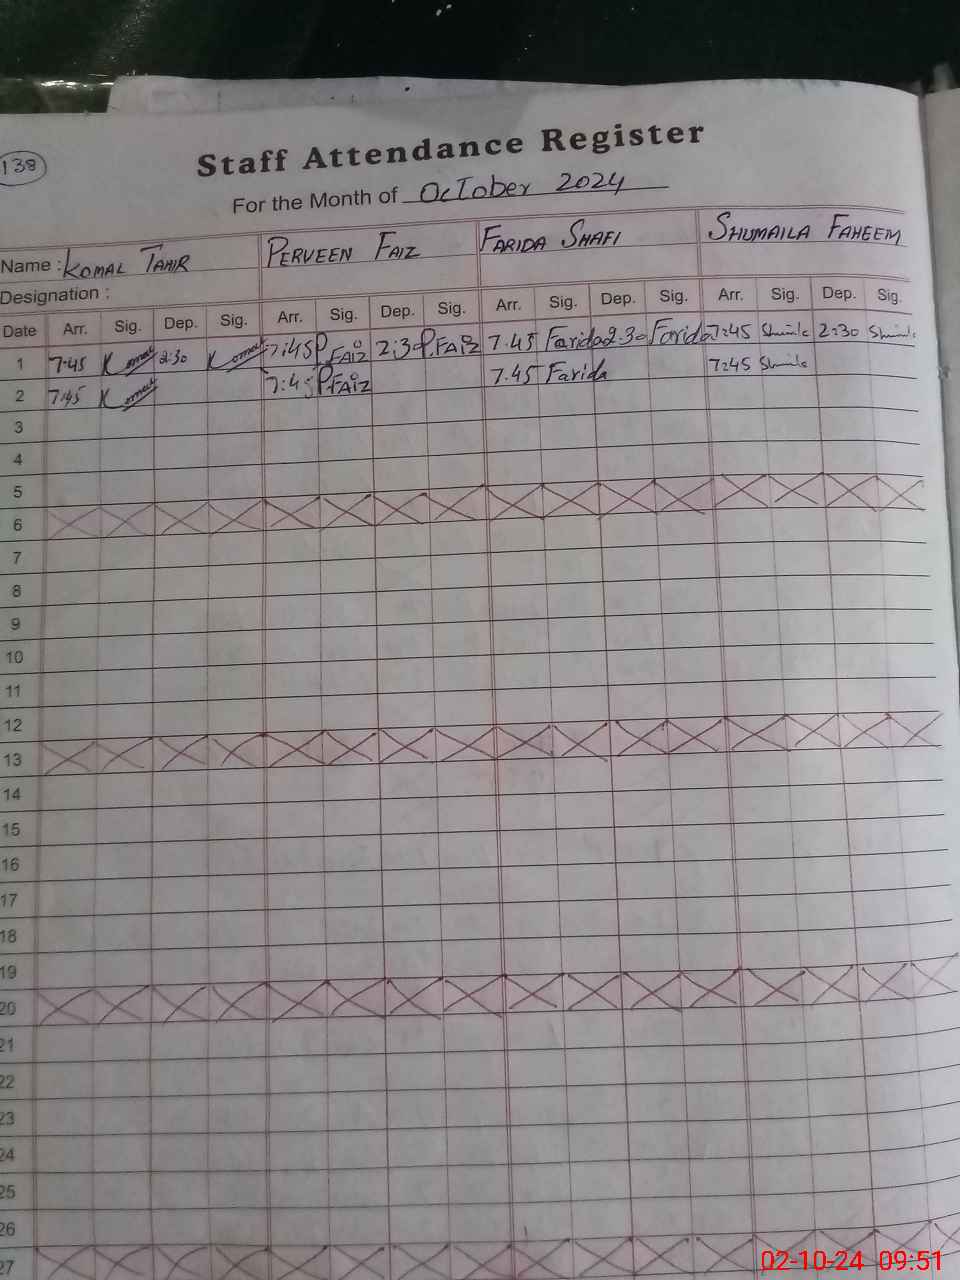 138
Staff Attendance Register
For the Month of October 2024
Name : KOMAL TAHIR PERVEEN FAIZ FARIDA SHAFI SHUMAILA FAHEEM
Designation :
Date Arr. Sig. Dep. Sig. Arr. Sig. Dep. Sig. Arr. Sig. Dep. Sig. Arr. Sig. Dep. Sig.
1 7:45 Komal 2:30 Komal 7:45 P.FAiZ 2:30 P.FAiZ 7.45 Farida 2.30 Farida 7:45 2:30
2 7:45 Komal 7:45 P.FAiZ 7.45 Farida 7:45
3
4
5
6
7
8
9
10
11
12
13
14
15
16
17
18
19
20
21
22
23
24
25
26
27
02-10-24 09:51